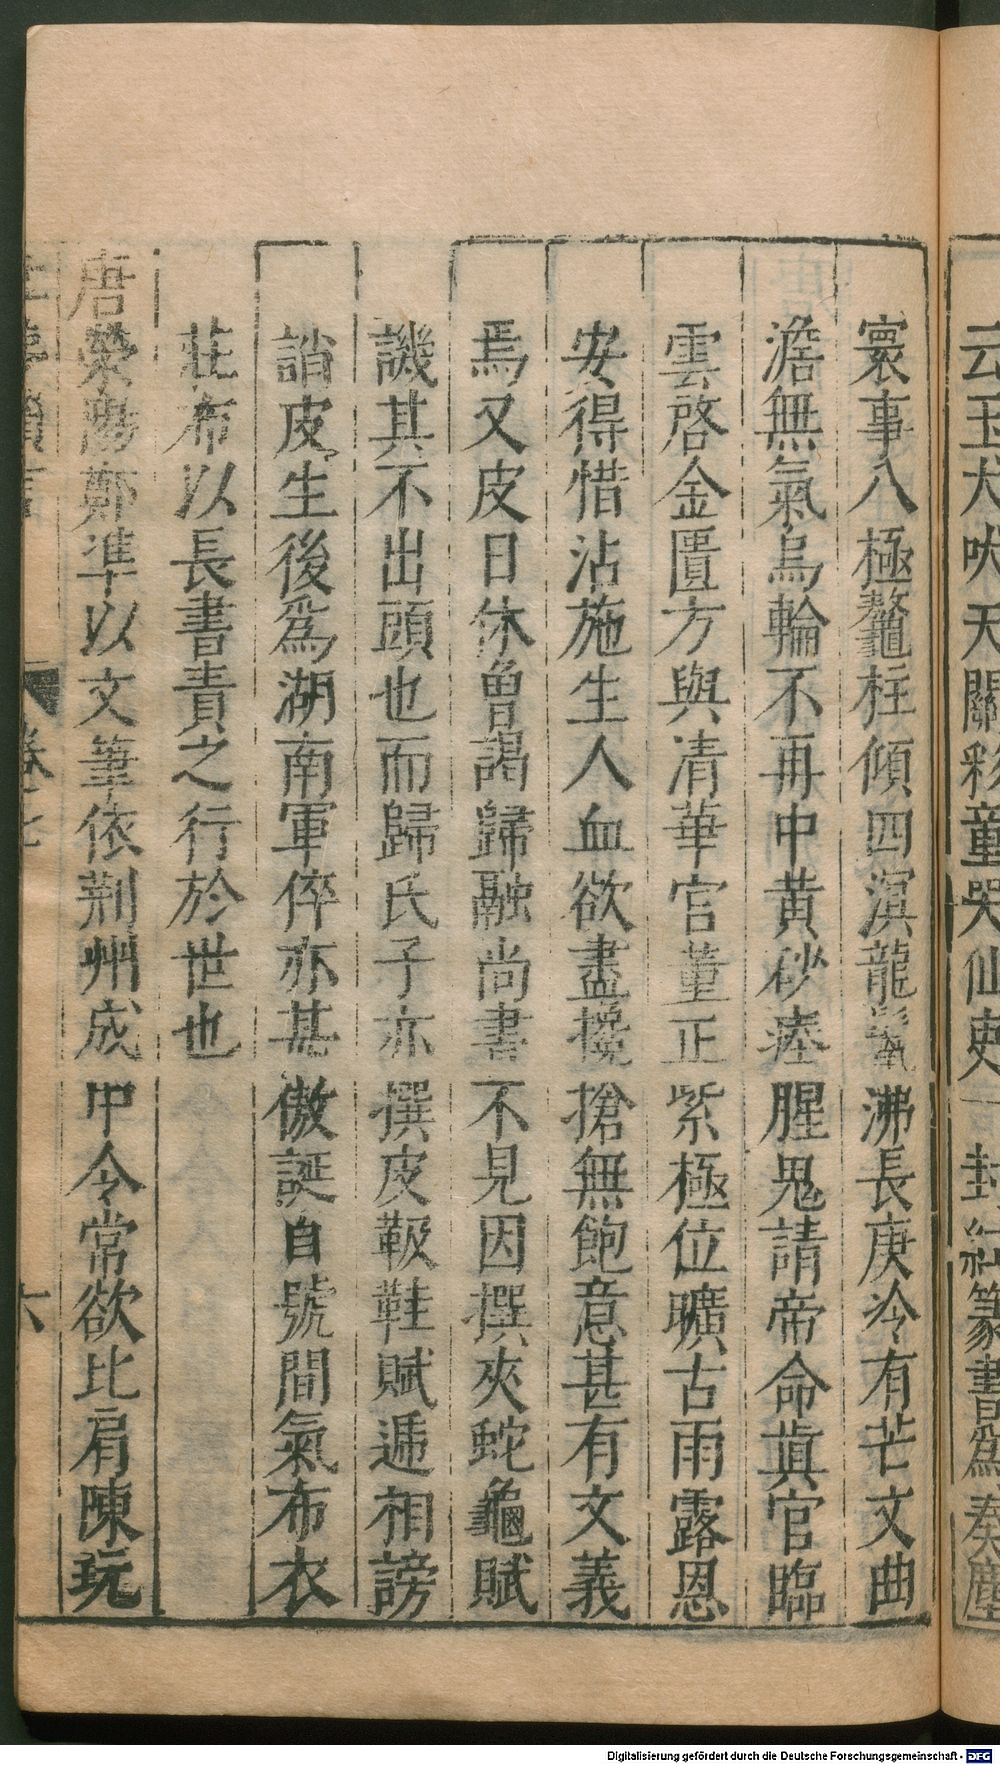 云玉犬吠天關彩童哭仙吏一封紅篆書爲奏塵
寰事八極鼇柱傾四溟龍鬣沸長庚冷有芒文曲
澹無氣烏輪不再中黄砂瘞腥鬼請帝命眞官臨
雲啓金匱方與清華官董正紫極位曠古雨露恩
安得惜沾施生人血欲盡攙搶無飽意甚有文義
焉又皮日休曾謁歸融尚書不見因撰夾蛇龜賦
譏其不出頭也而歸氏子亦撰皮靸鞋賦遞相謗
誚皮生後爲湖南軍倅亦甚傲誕自號間氣布衣
莊布以長書責之行於世也
唐滎陽鄭準以文筆依荆州成中令常欲比肩陳玩
卷七
六
Digitalisierung gefördert durch die Deutsche Forschungsgemeinschaft - DFG